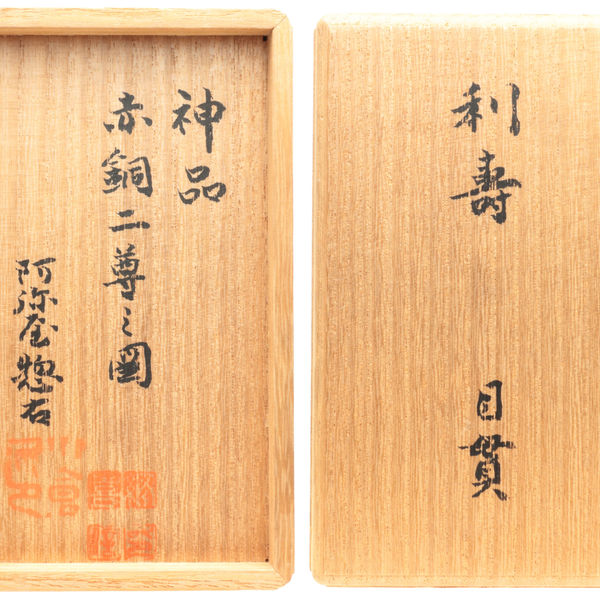 利壽
目貫
神品
赤銅二尊之圖
阿弥屋惣右